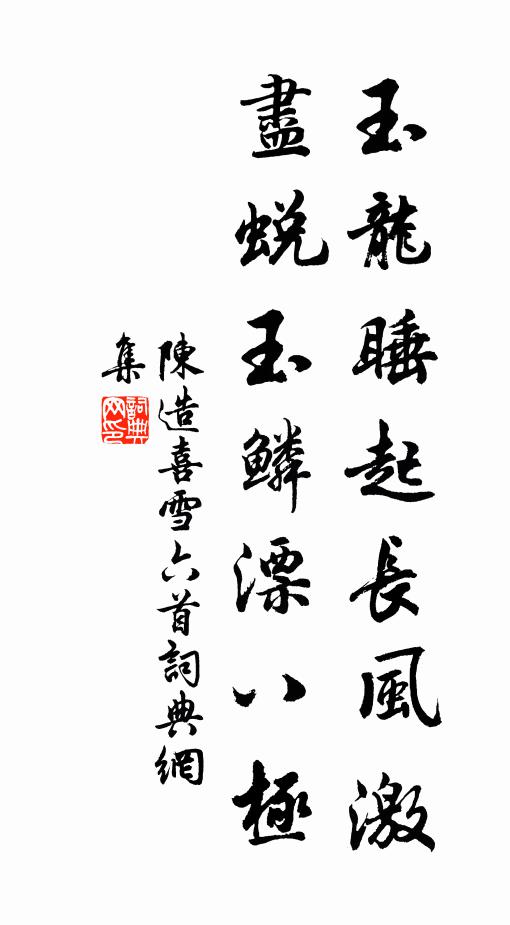 玉龍睡起長風激
盡蛻玉鱗漂八極
陳造喜雪六首詞典網
集
詞典网印